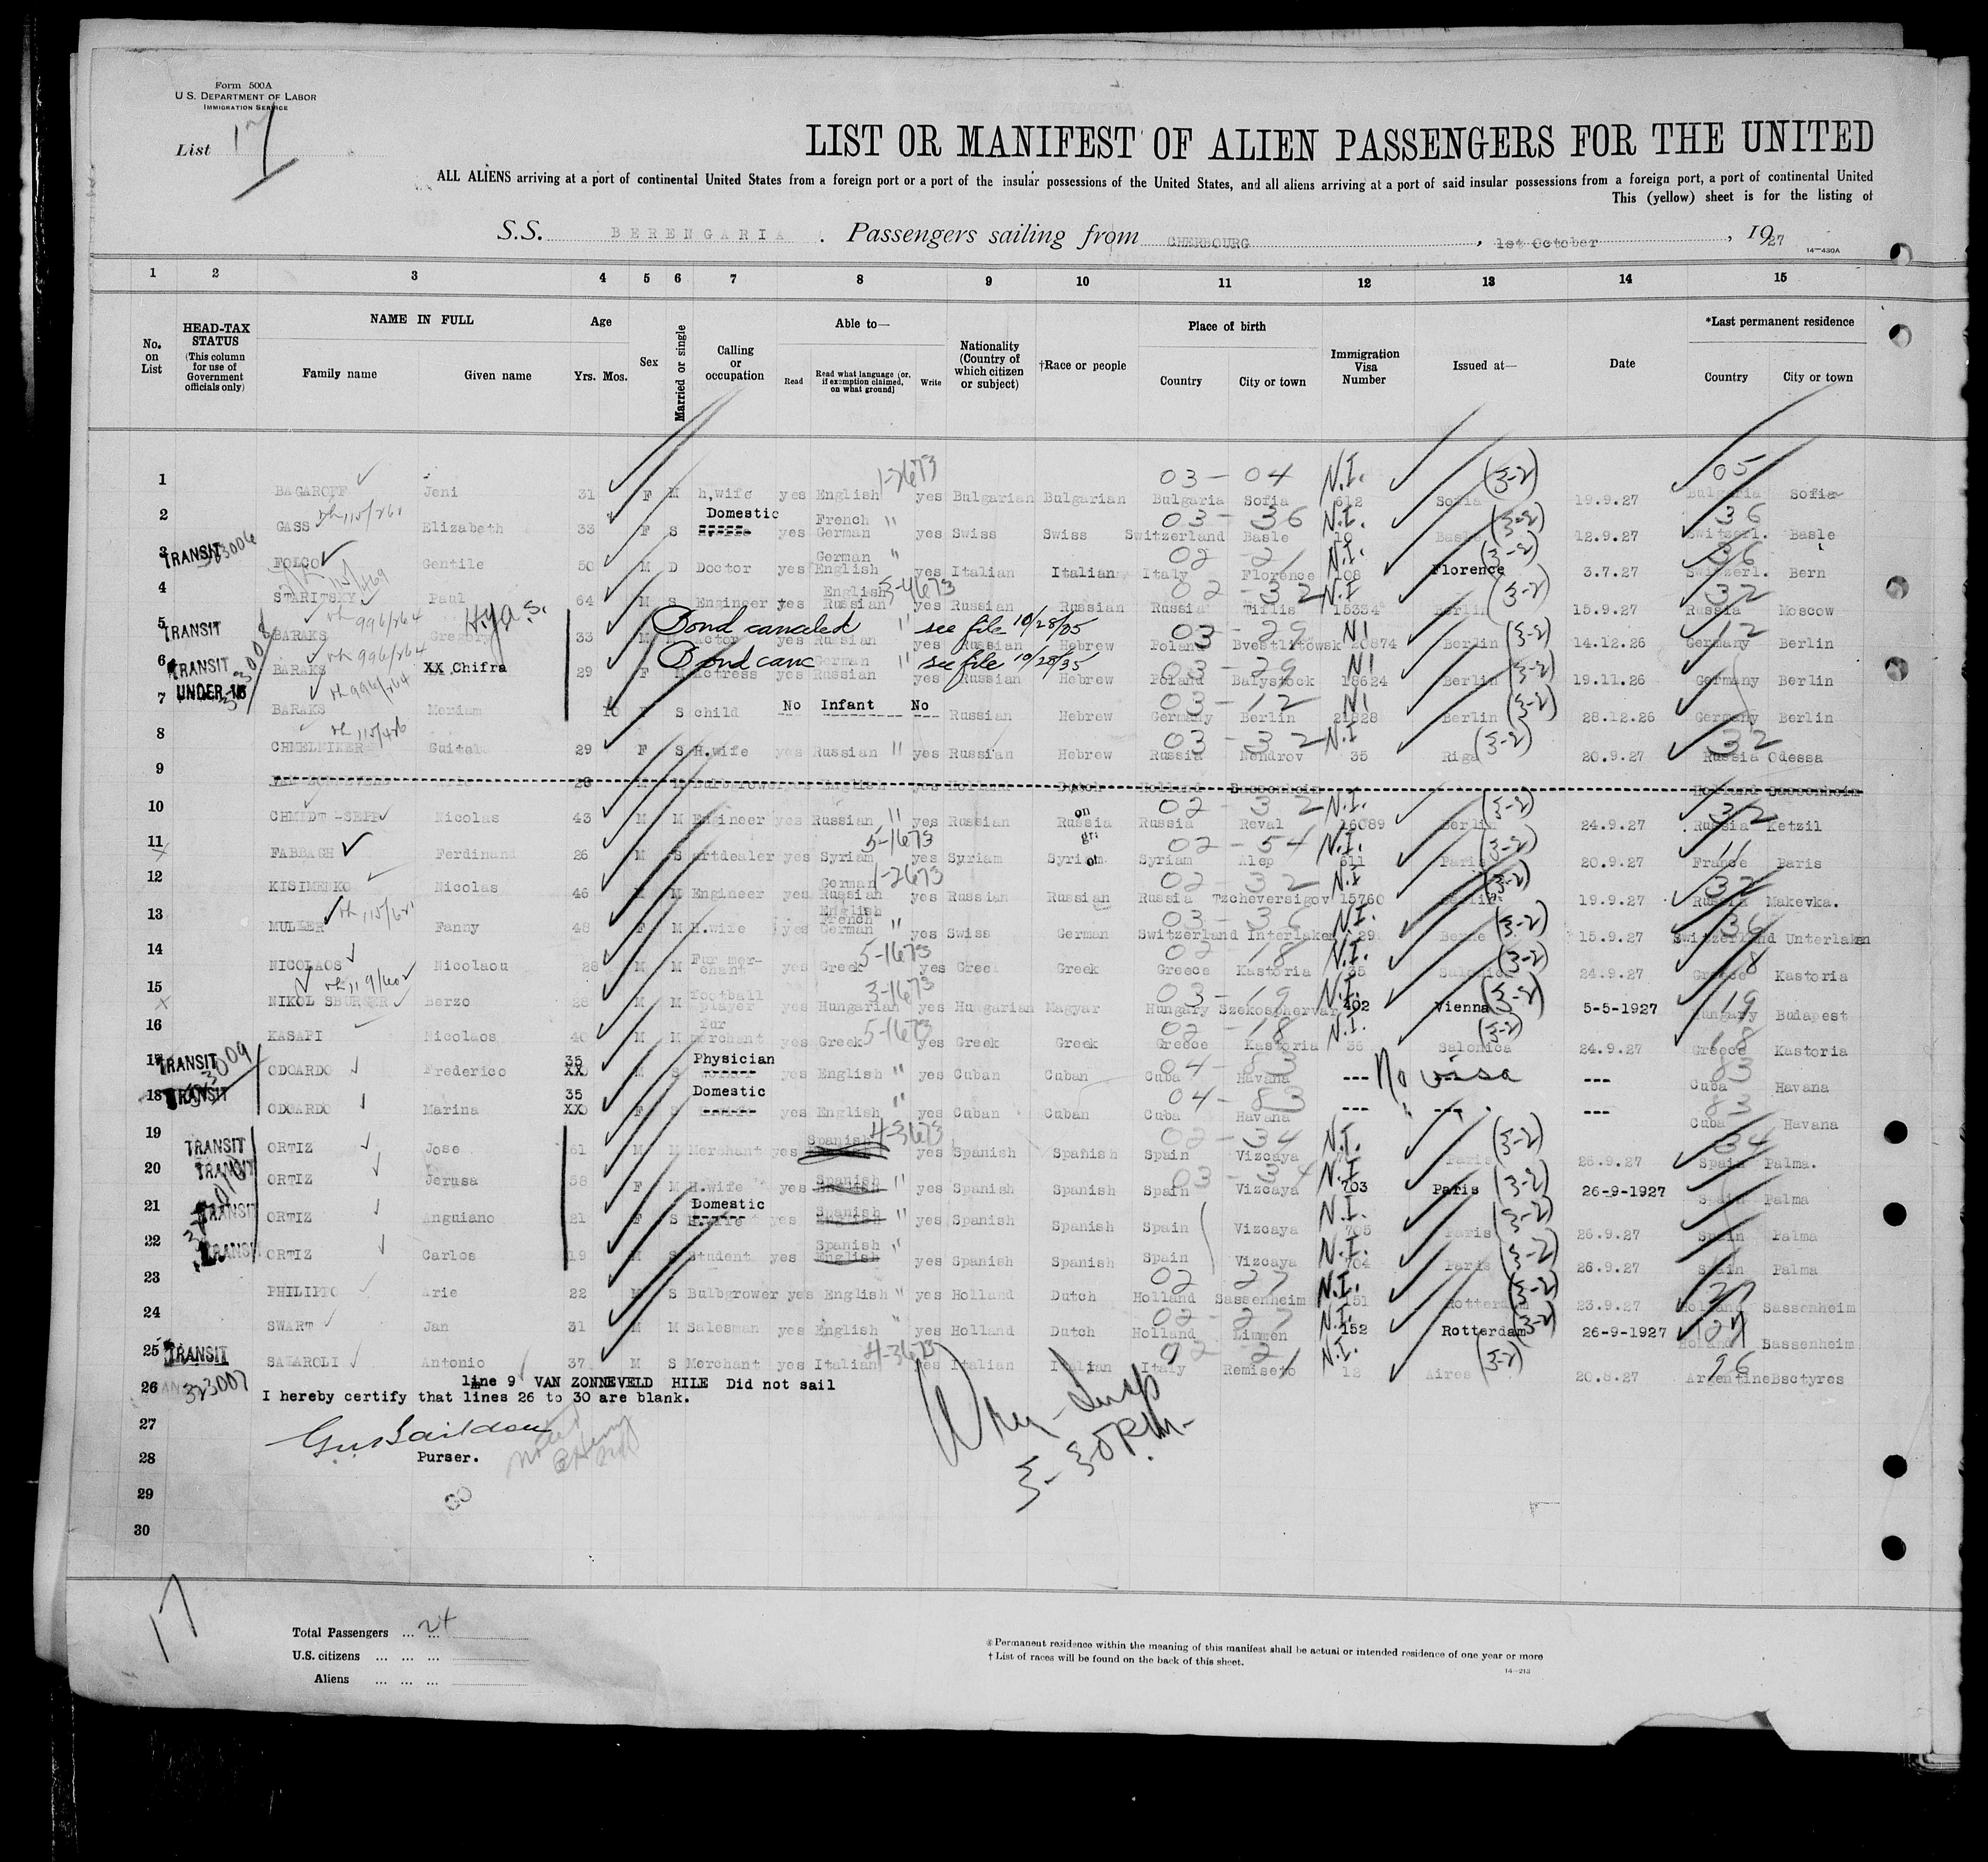 Form 500A
U. S. DEPARTMENT OF LABOR
IMMIGRATION SERVICE
List 17
LIST OR MANIFEST OF ALIEN PASSENGERS FOR THE UNITED
ALL ALIENS arriving at a port of continental United States from a foreign port or a port of the insular possessions of the United States, and all aliens arriving at a port of said insular possessions from a foreign port, a port of continental United
This (yellow) sheet is for the listing of
S.S. BERENGARIA. Passengers sailing from CHERBOURG, 1st October, 1927
14—430A
1 2 3 4 5 6 7 8 9 10 11 12 13 14 15
No. on List
HEAD-TAX STATUS (This column for use of Government officials only)
NAME IN FULL Family name Given name
Age Yrs. Mos.
Sex
Married or single
Calling or occupation
Able to— Read Read what language [or, if exemption claimed, on what ground] Write
Nationality (Country of which citizen or subject)
†Race or people
Place of birth Country City or town
Immigration Visa Number
Issued at—
Date
*Last permanent residence Country City or town
1 BAGAROFF Jeni 31 F M h,wife yes English 1-2673 yes Bulgarian Bulgarian 03-04 Bulgaria Sofia N.I. 612 Sofia (3-2) 19.9.27 05 Bulgaria Sofia
2 GASS Elizabeth 33 F S Domestic yes French German " yes Swiss Swiss 03-36 Switzerland Basle N.I. 10 Basle (3-2) 12.9.27 36 Switzerl. Basle
3 TRANSIT 323006 FOLCO Gentile 50 M D Doctor yes German English " yes Italian Italian 02-21 Italy Florence N.I. 108 Florence (3-2) 3.7.27 36 Switzerl. Bern
4 STARITSKY Paul 64 M S Engineer yes English Russian 3-4673 yes Russian Russian 02-32 Russia Tiflis N.I 15354 Berlin (3-2) 15.9.27 32 Russia Moscow
5 TRANSIT BARAKS Gregory 33 M M Actor yes Russian " yes Russian Hebrew 03-29 Poland Bvestlitowsk NI 20874 Berlin (3-2) 14.12.26 12 Germany Berlin
Bond canceled see file 10/28/35
6 TRANSIT BARAKS XX Chifra 29 F M Actress yes German Russian " yes Russian Hebrew 03-29 Poland Balystock NI 18624 Berlin (3-2) 19.11.26 Germany Berlin
Bond canc see file 10/28/35
7 UNDER 16 BARAKS Meriam 10 F S child No Infant No Russian Hebrew 03-12 Germany Berlin NI 21828 Berlin (3-2) 28.12.26 Germany Berlin
8 CHMELNIKER Guitel 29 F S H.wife yes Russian " yes Russian Hebrew 03-32 Russia Nendrov N.I 35 Riga (3-2) 20.9.27 32 Russia Odessa
9 VAN ZONNEVELD 28 M M Bulbgrower yes English yes Holland Dutch Holland Sassenheim Holland Sassenheim
10 CHMIDT-SEPP Nicolas 43 M M Engineer yes Russian " yes Russian Russia 02-32 Russia Reval N.I. 16089 Berlin (3-2) 24.9.27 32 Russia Ketzil
11 FABBAGH Ferdinand 26 M S Artdealer yes Syriam 5-1673 yes Syriam Syriam 02-54 Syriam Alep N.I. 611 Paris (3-2) 20.9.27 11 France Paris
12 KISIMENKO Nicolas 46 M M Engineer yes German Russian English 1-2673 yes Russian Russian 02-32 Russia Tzcheversigov N.I 15760 Berlin (3-2) 19.9.27 32 Russia Makevka.
13 MULLER Fanny 48 F M H.wife yes French German " yes Swiss German 03-36 Switzerland Interlaken N.I. 29 Berne (3-2) 15.9.27 36 Switzerland Unterlaken
14 NICOLAOS Nicolaou 28 M M Fur merchant yes Greek 5-1673 yes Greek Greek 02-18 Greece Kastoria N.I. 35 Salonica (3-2) 24.9.27 18 Greece Kastoria
15 NIKOLSBURGER Berzo 28 M M football player yes Hungarian 3-1673 yes Hungarian Magyar 03-19 Hungary Szekosphervar N.I. 402 Vienna (3-2) 5-5-1927 19 Hungary Budapest
16 KASAPI Nicolaos 40 M M fur merchant yes Greek 5-1673 yes Greek Greek 02-18 Greece Kastoria N.I. 36 Salonica (3-2) 24.9.27 18 Greece Kastoria
17 TRANSIT ODOARDO Frederico 35 XX M S Physician yes English " yes Cuban Cuban 04-83 Cuba Havana --- No visa --- 83 Cuba Havana
18 TRANSIT ODOARDO Marina 35 XX F S Domestic yes English " yes Cuban Cuban 04-83 Cuba Havana --- --- --- 83 Cuba Havana
19 TRANSIT ORTIZ Jose 61 M M Merchant yes Spanish 4-3673 yes Spanish Spanish 02-34 Spain Vizcaya N.I. Paris (3-2) 26.9.27 34 Spain Palma.
20 TRANSIT ORTIZ Jerusa 58 F M H.wife yes Spanish " yes Spanish Spanish 03-34 Spain Vizcaya N.I 703 Paris (3-2) 26-9-1927 Spain Palma
21 TRANSIT ORTIZ Anguiano 21 F S Domestic H.wife yes Spanish " yes Spanish Spanish Spain Vizcaya N.I. 705 Paris (3-2) 26.9.27 Spain Palma
22 TRANSIT ORTIZ Carlos 19 M S Student yes Spanish English " yes Spanish Spanish Spain Vizcaya N.I. 704 Paris (3-2) 26.9.27 Spain Palma
23 PHILIPPO Arie 22 M S Bulbgrower yes English " yes Holland Dutch 02 27 Holland Sassenheim N.I. 151 Rotterdam (3-2) 23.9.27 27 Holland Sassenheim
24 SWART Jan 31 M M Salesman yes English " yes Holland Dutch 02-27 Holland Limmen N.I. 152 Rotterdam (3-2) 26-9-1927 27 Holland Sassenheim
25 TRANSIT SATAROLI Antonio 37 M S Merchant yes Italian 4-3673 yes Italian Italian 02 21 Italy Remiseto N.I. 12 Aires (3-2) 20.8.27 96 Argentine Bsctyres
26 323007 line 9 VAN ZONNEVELD HILE Did not sail
I hereby certify that lines 26 to 30 are blank.
27
28 Purser.
29
30
3-30 P.M.
17
Total Passengers ... ... 24
U.S. citizens ... ... ...
Aliens ... ... ...
*Permanent residence within the meaning of this manifest shall be actual or intended residence of one year or more
†List of races will be found on the back of this sheet.
14—213